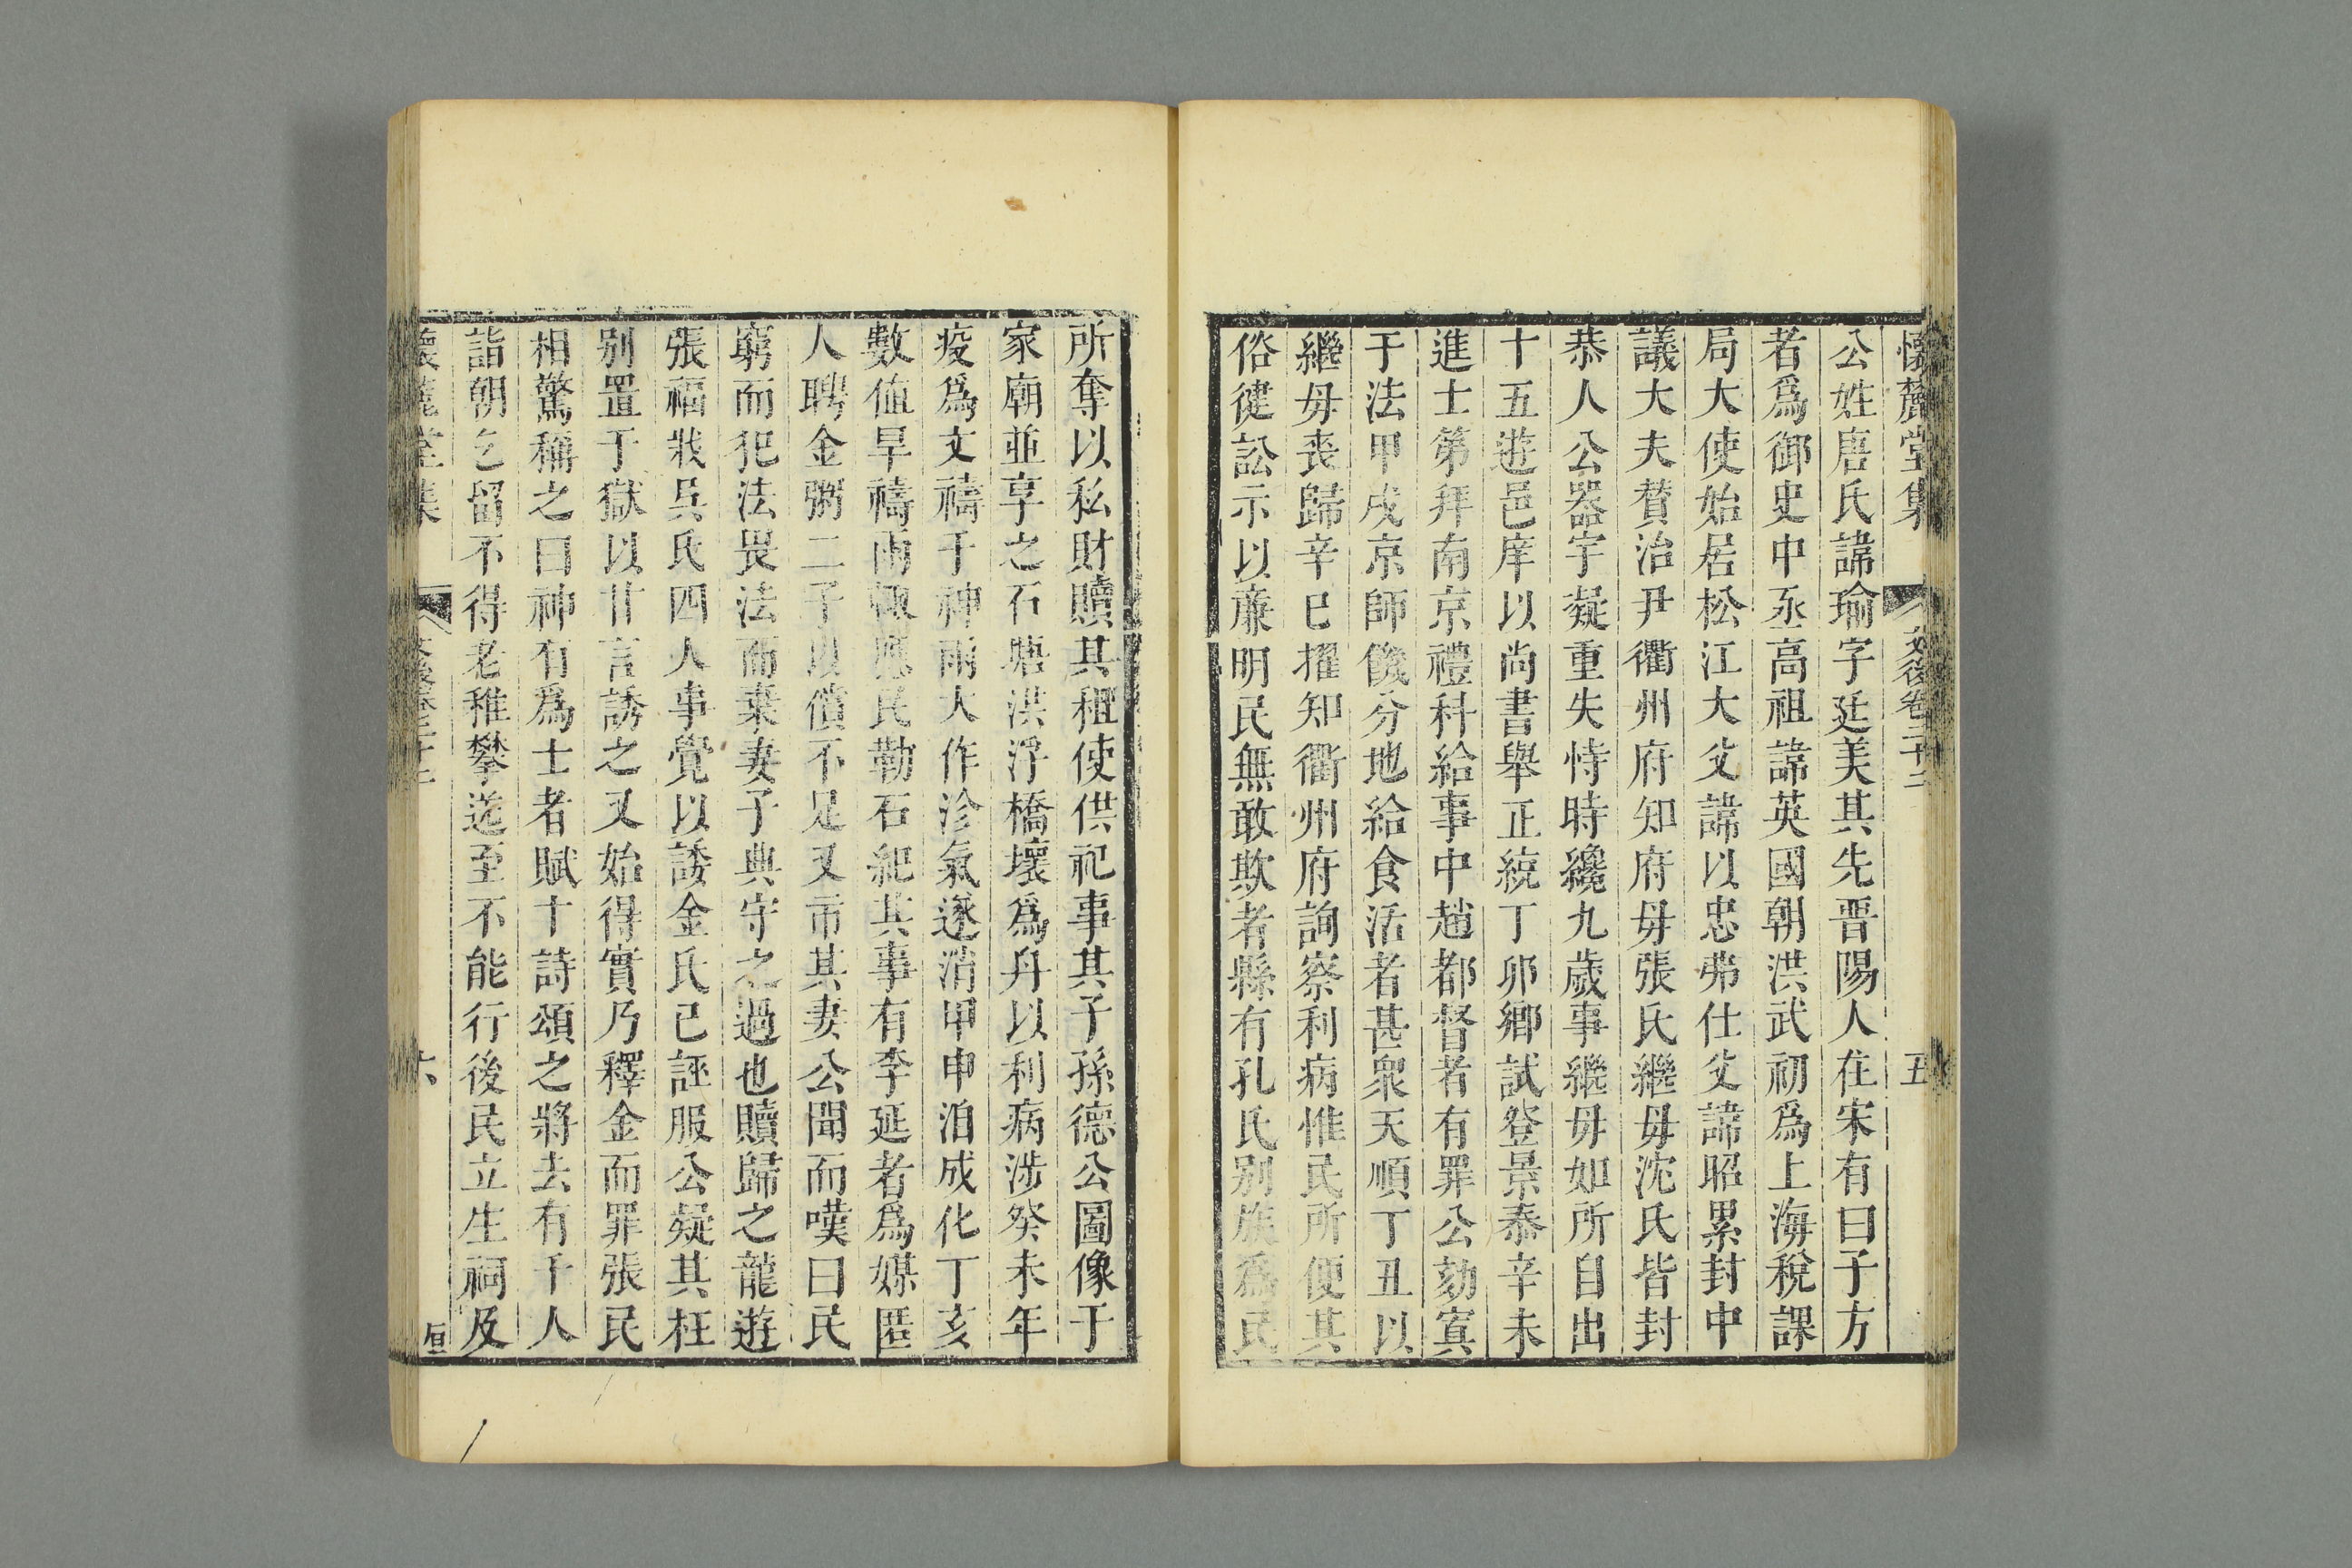 懷麓堂集 文後卷二十二 五
公姓唐氏諱瑜字廷美其先晋陽人在宋有曰子方
者爲御史中丞高祖諱英國朝洪武初爲上海稅課
局大使始居松江大父諱以忠弗仕父諱昭累封中
議大夫賛治尹衢州府知府毋張氏繼毋沈氏皆封
恭人公器宇凝重失恃時纔九歲事繼毋如所自出
十五遊邑庠以尚書舉正統丁卯鄉試登景泰辛未
進士第拜南京禮科給事中趙都督者有罪公劾寘
于法甲戌京師饑分地給食活者甚衆天順丁丑以
繼毋喪歸辛巳擢知衢州府詢察利病惟民所便其
俗健訟示以廉明民無敢欺者縣有孔氏别族爲民
所奪以私財贖其租使供祀事其子孫德公圖像于
家廟並享之石塘洪浮橋壞爲舟以利病涉癸未年
疫爲文禱于神雨大作沴氣逐消甲申泊成化丁亥
數値旱禱雨輒應民勒石紀其事有李延者爲媒匿
人聘金粥二子以償不足又帀其妻公聞而嘆曰民
窮而犯法畏法而棄妻子典守之過也贖歸之龍遊
張福戕吳氏四人事覺以諉金氏已誣服公疑其枉
别置于獄以甘言誘之又始得實乃釋金而罪張民
相驚稱之曰神有爲士者賦十詩頌之將去有千人
詣朝乞留不得老稚攀送至不能行後民立生祠及
懷麓堂集 文後卷二十二 六